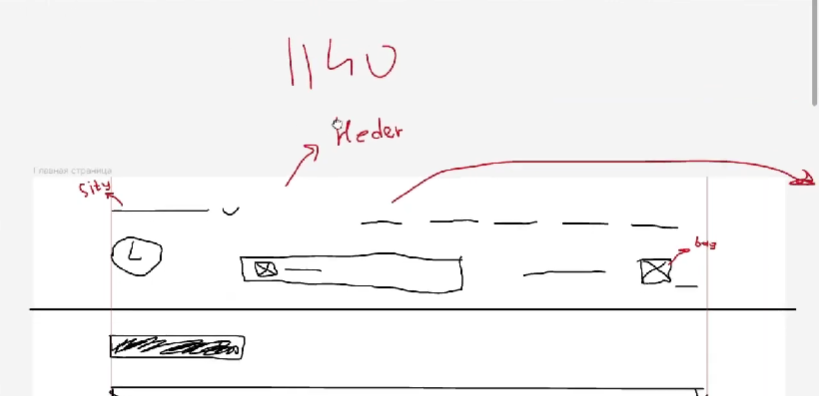 1140
Heder
Главная страница
Sity
L
bag